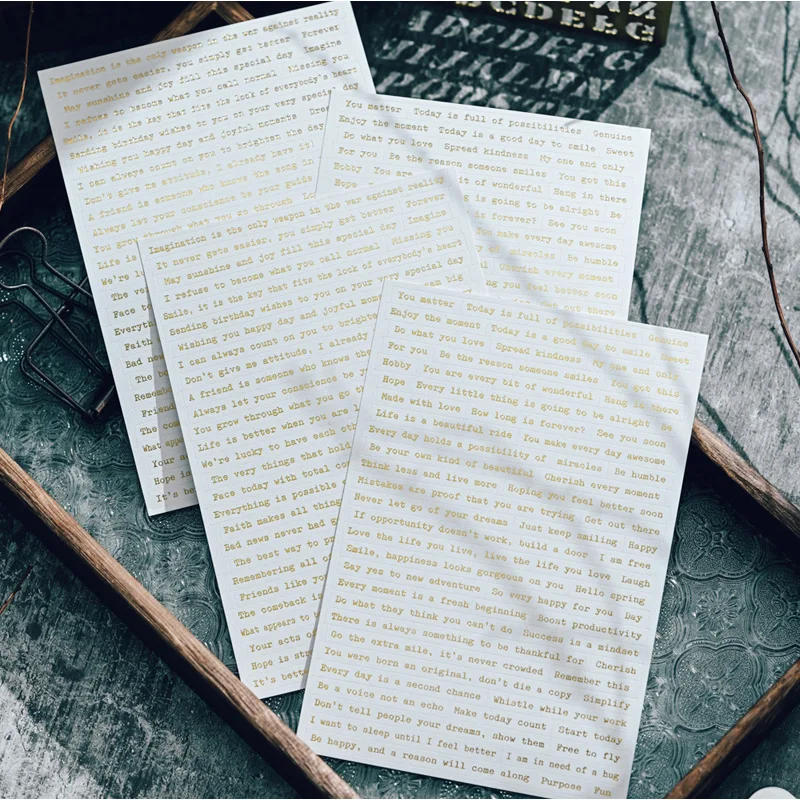 ABCDEFG
Imagination is the only weapon in the war against reality
It never gets easier, you simply get better Forever
May sunshine and joy fill this special day Imagine
I refuse to become what you call normal Missing you
Smile, it is the key that fits the lock of everybody's heart
Sending birthday wishes to you on your very special day
Wishing you happy day and joyful moments
I can always count on you to brighten the day
Don't give me attitude, I already have it!
A friend is someone who knows the song in
Always let your conscience be your guide
You grow through what you go through
Life is
We're lu
The ver
Face to
Everyth
Faith
Bad new
The bo
Rememb
Friend
The com
What appe
Your a
Hope is
It's be
You matter Today is full of possibilities Genuine
Enjoy the moment Today is a good day to smile Sweet
Do what you love Spread kindness My one and only
For you Be the reason someone smiles You got this
Hobby You are it of wonderful Hang in there
Hope is going to be alright Be
is forever? See you soon
You make every day awesome
miracles Be humble
Cherish every moment
you feel better soon
Get out there
Imagination is the only weapon in the war against reality
It never gets easier, you simply get better Forever
May sunshine and joy fill this special day Imagine
I refuse to become what you call normal Missing you
Smile, it is the key that fits the lock of everybody's heart
Sending birthday wishes to you on your very special day
Wishing you happy day and joyful mome
I can always count on you to brighte
Don't give me attitude, I already
A friend is someone who knows the
Always let your conscience be y
You grow through what you go th
Life is better when you are l
We're lucky to have each oth
The very things that hold
Face today with total co
Everything is possible
Faith makes all thing
Bad news never had g
The best way to pr
Remembering all o
Friends like yo
The comeback is
What appears to
Your acts o
Hope is str
It's bett
You matter Today is full of possibilities Genuine
Enjoy the moment Today is a good day to smile Sweet
Do what you love Spread kindness My one and only
For you Be the reason someone smiles You got this
Hobby You are every bit of wonderful Hang in there
Hope Every little thing is going to be alright Be
Made with love How long is forever? See you soon
Life is a beautiful ride You make every day awesome
Every day holds a possibility of miracles Be humble
Be your own kind of beautiful Cherish every moment
Think less and live more Hoping you feel better soon
Mistakes are proof that you are trying Get out there
Never let go of your dreams Just keep smiling Happy
If opportunity doesn't work, build a door I am free
Love the life you live, live the life you love Laugh
Smile, happiness looks gorgeous on you Hello spring
Say yes to new adventure So very happy for you Day
Every moment is a fresh beginning Boost productivity
Do what they think you can't do Success is a mindset
There is always something to be thankful for Cherish
Go the extra mile, it's never crowded Remember this
You were born an original, don't die a copy Simplify
Every day is a second chance Whistle while your work
Be a voice not an echo Make today count Start today
Don't tell people your dreams, show them Free to fly
I want to sleep until I feel better I am in need of a hug
Be happy, and a reason will come along Purpose Fun